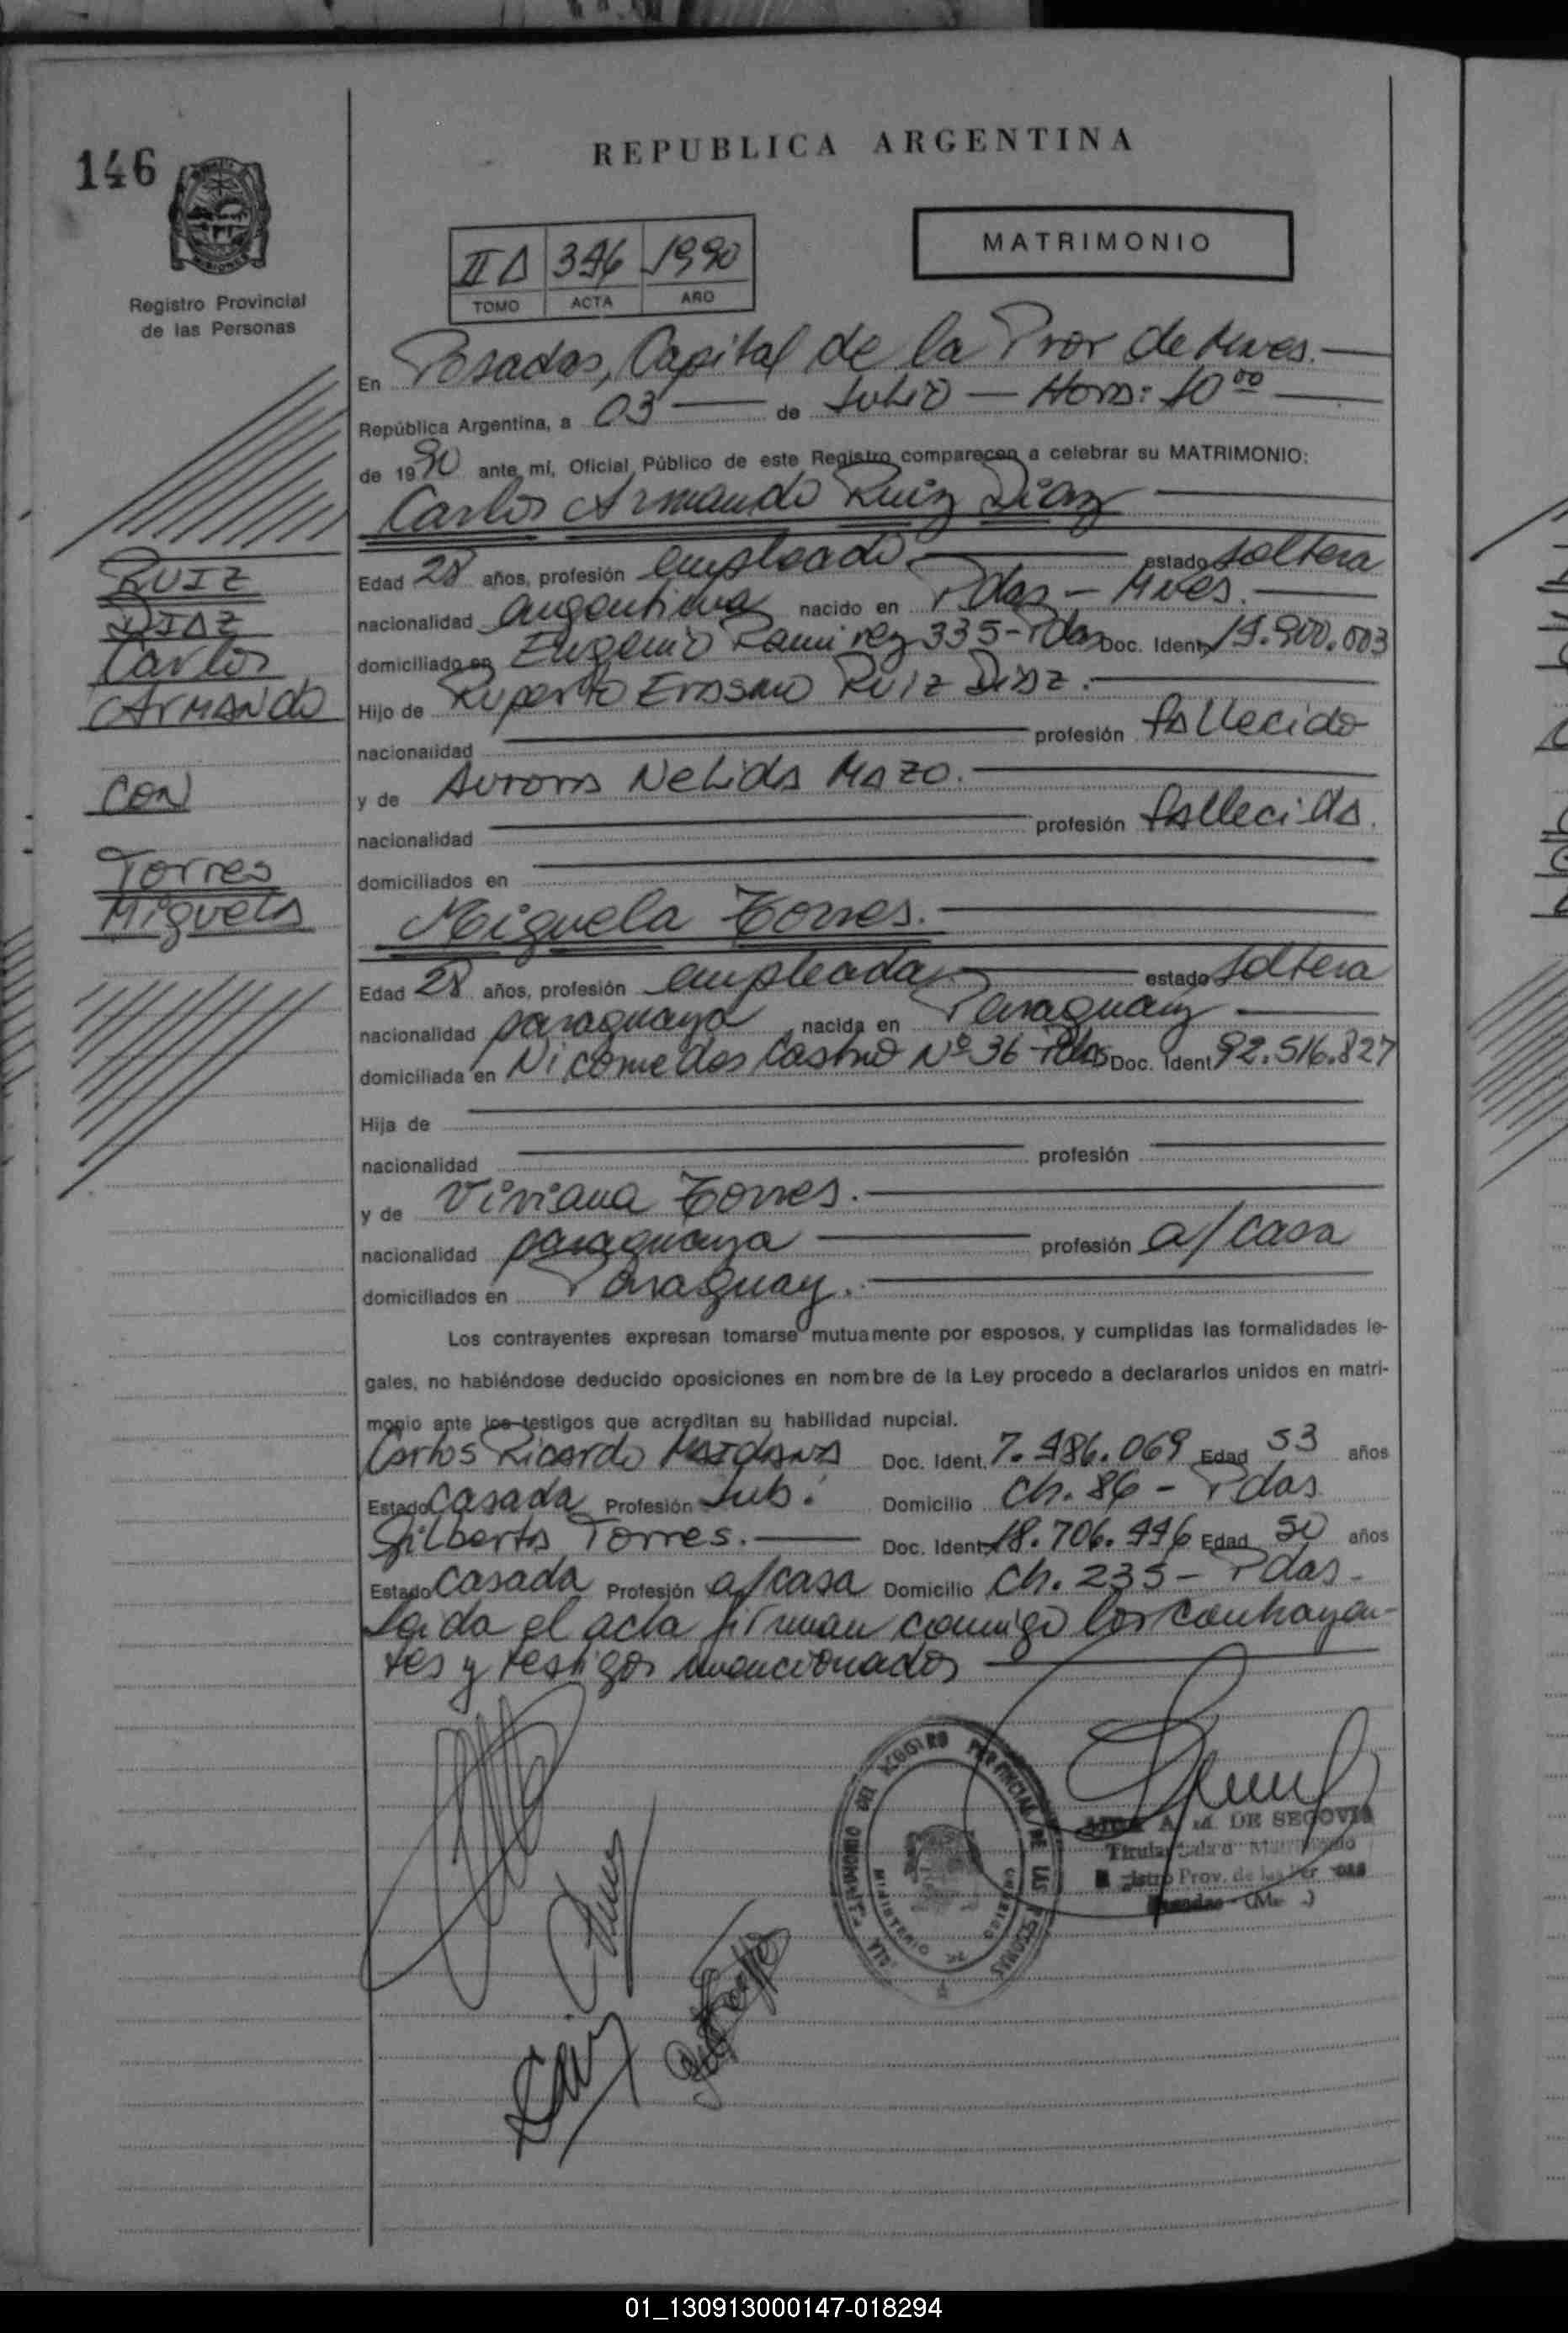 146
REPUBLICA ARGENTINA
MATRIMONIO
II A 396 1990
TOMO ACTA AÑO
Registro Provincial
de las Personas
En Posadas, Capital de la Prov de Mnes.
República Argentina, a 03 de Julio - Hora: 10 00
de 1990 ante mí, Oficial Público de este Registro comparecen a celebrar su MATRIMONIO:
Carlos Armando Ruiz Diaz
RUIZ
DIAZ
Carlos
ArMANdo
CON
Torres
Miguela
Edad 28 años, profesión empleado estado soltera
nacionalidad argentina nacido en Pdas - Mnes.
domiciliado en Eugenio Ramirez 335 - Pdas Doc. Ident. 14.900.003
Hijo de Ruperto Erasmo Ruiz Diaz.
nacionalidad profesión fallecido
y de Aurora Nelida Mazo.
nacionalidad profesión fallecida.
domiciliados en
Miguela Torres.
Edad 28 años, profesión empleada estado soltera
nacionalidad paraguaya nacida en Paraguay
domiciliada en Nicomedes Castro Nº 36 - Pdas Doc. Ident. 92.516.827
Hija de
nacionalidad profesión
y de Viviana Torres.
nacionalidad paraguaya profesión a/casa
domiciliados en Paraguay.
Los contrayentes expresan tomarse mutuamente por esposos, y cumplidas las formalidades le-
gales, no habiéndose deducido oposiciones en nombre de la Ley procedo a declararlos unidos en matri-
monio ante los testigos que acreditan su habilidad nupcial.
Carlos Ricardo Maidana Doc. Ident. 7.486.069 Edad 53 años
Estado Casada Profesión Jub. Domicilio Ch. 86 - Pdas
Gilberta Torres. Doc. Ident. 18.706.446 Edad 50 años
Estado Casada Profesión a/casa Domicilio Ch. 235 - Pdas -
Leida el acta firman conmigo los contrayen-
tes y testigos mencionados
DEL REGISTRO PROVINCIAL DE LAS PERSONAS
MINISTERIO DE
A. M. DE SEGOVIA
Titular
Prov. de las
Posadas - (Mnes.)
01_130913000147-018294